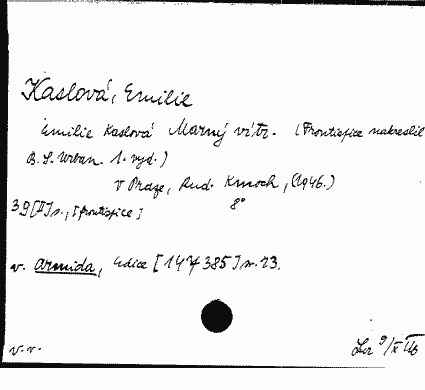 Kaslová, Emilie
Emilie Kaslová Marný vítr. (Frontispice nakreslil
B. S. Urban. 1. vyd.)
V Praze, Rud. Kmoch, (1946.)
39[II]s., [frontispice] 8°
v. Armida, edice [147385] sv. 23.
v. v. 9/X